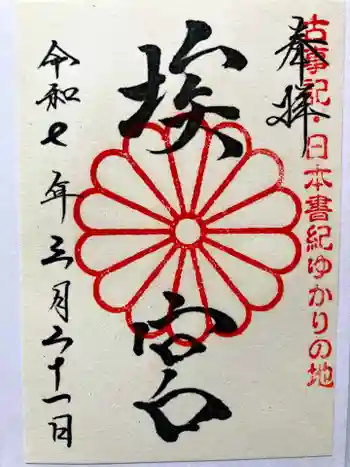 奉拝
古事記・日本書紀ゆかりの地
埃宮
令和七年三月二十一日